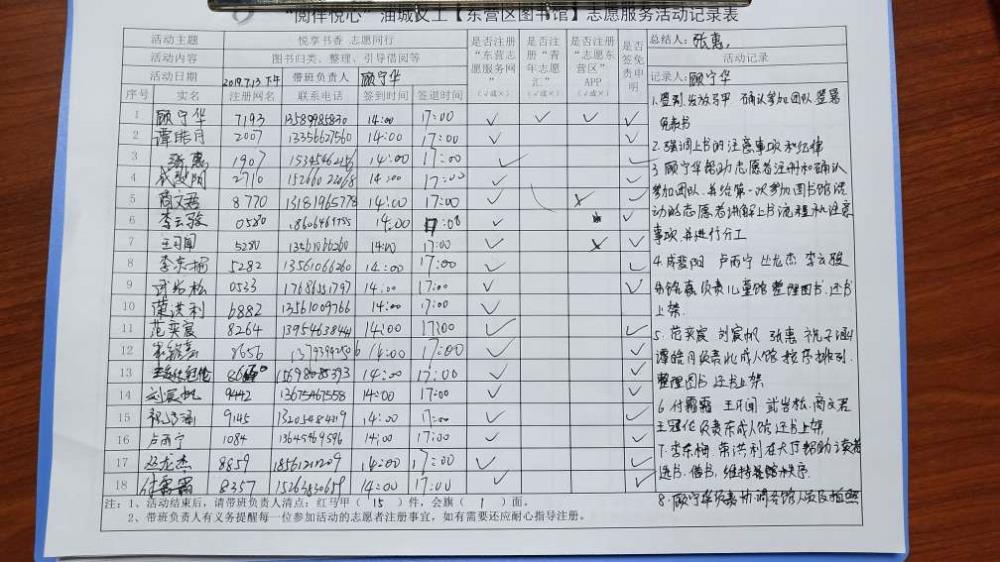 “阅伴悦心”油城义工【东营区图书馆】志愿服务活动记录表
活动主题 悦享书香 志愿同行
活动内容 图书归类、整理、引导借阅等
活动日期 2019.7.13 下午 带班负责人 顾宁华
是否注册“东营志愿服务网”（√或×）
是否注册“青年志愿汇”（√或×）
是否注册“志愿东营区”APP（√或×）
是否签免责申明
总结人：张惠
活动记录
记录人：顾宁华
序号 实名 注册网名 联系电话 签到时间 签退时间
1 顾宁华 7193 13589985830 14:00 17:00 √ √ √ √
2 谭皓月 2007 13356627560 14:00 17:00 √ √
3 张惠 1907 14:00 17:00 √
4 2710 14:00 17:00 √
5 商文君 8770 13181965778 14:00 17:00 √ × √
6 李云骏 0580 14:00 √ √
7 王习闻 5280 13561066260 14:00 17:00 √ × √
8 5282 13561066260 14:00 17:00 √ √
9 武岩松 0533 17686551797 14:00 17:00 √ √
10 荣洪利 6882 13561009766 14:00 17:00 √
11 范奕宸 8264 13954638441 14:00 17:00 √ √
12 8656 14:00 17:00 √ √
13 15698085393 14:00 17:00 √ √
14 刘宸帆 9442 13675467558 14:00 17:00 √ √
15 9145 14:00 17:00 √ √
16 卢雨宁 1084 13645469596 14:00 17:00 √ √
17 丛龙杰 8859 18561211209 14:00 17:00 √ √
18 付霭霭 8357 14:00 17:00 √ √
1、签到 发放马甲 确认参加团队 签署
免责书
2、强调上书的注意事项和纪律
3、顾宁华帮助志愿者注册和确认
参加团队,并给第一次参加图书馆活
动的志愿者讲解上书流程和注意
事项,并进行分工
4、成斐阳 卢雨宁 丛龙杰 李云骏
负责儿童馆整理图书,还书
上架.
5、范奕宸 刘宸帆 张惠
谭皓月负责北成人馆按序排列.
整理图书 还书上架.
6、付霭霭 王习闻 武岩松 商文君
负责东成人馆还书上架
7、荣洪利在大厅帮助读者
还书、借书,维持 秩序.
8、顾宁华负责协调
注：1、活动结束后，请带班负责人清点：红马甲（ 15 ）件，会旗（ 1 ）面。
2、带班负责人有义务提醒每一位参加活动的志愿者注册事宜，如有需要还应耐心指导注册。